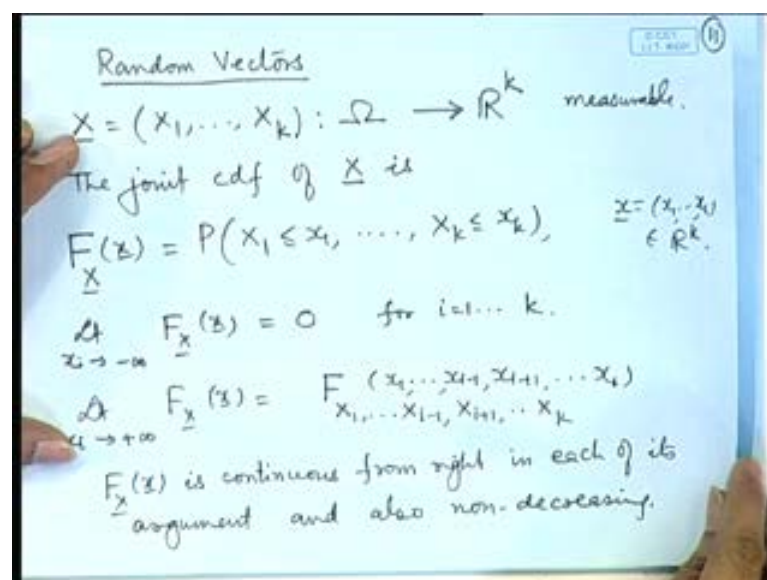 Random Vectors
X = (X₁, ..., X_k) : Ω → ℝ^k measurable.
The joint cdf of X is
F_X(x) = P(X₁ ≤ x₁, ...., X_k ≤ x_k), x = (x₁...x_k) ∈ ℝ^k.
Lt x_i → -∞ F_X(x) = 0 for i=1... k.
Lt x_i → +∞ F_X(x) = F_{X₁,...X_{i-1}, X_{i+1},.. X_k}(x₁,...x_{i-1}, x_{i+1}, ...x_k)
F_X(x) is continuous from right in each of its
argument and also non-decreasing.
11